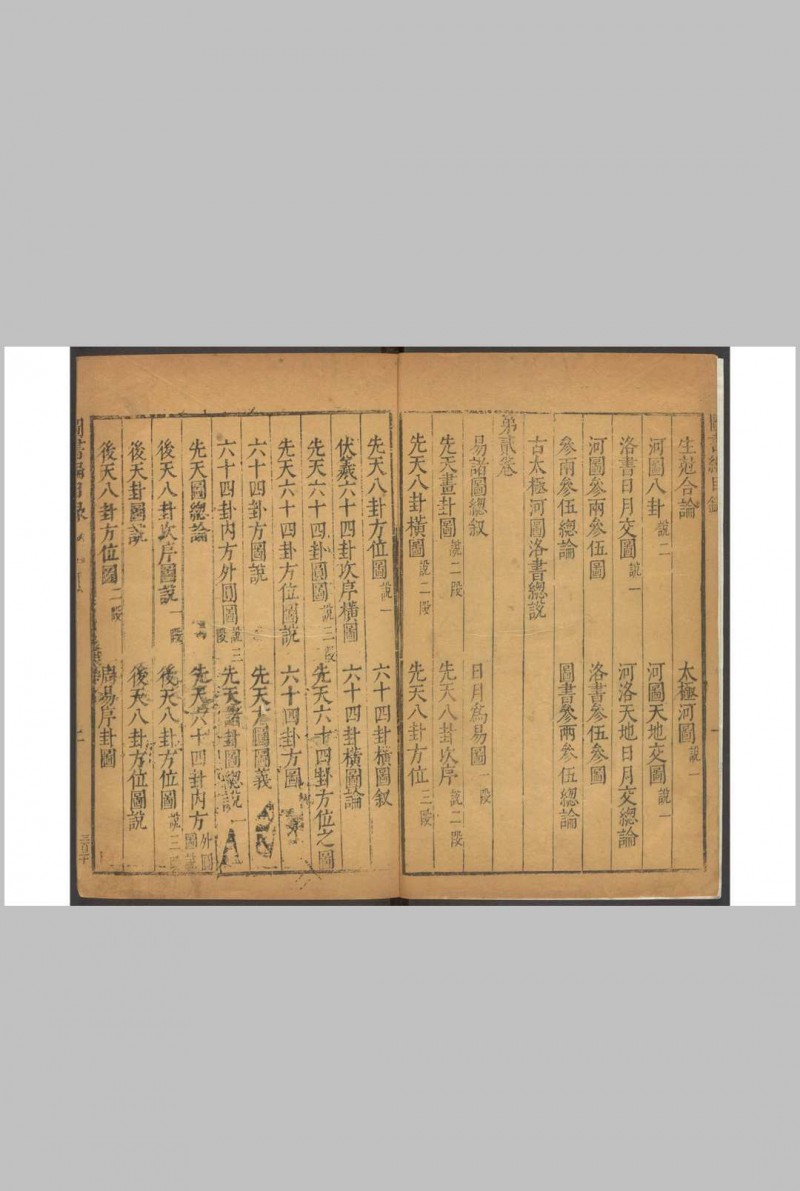 圖書編目錄
生尅合論 太極河圖 說一
河圖八卦 說二 河圖天地交圖 說一
洛書日月交圖 說一 河洛天地日月交總論
河圖參兩參伍圖 洛書參伍參圖
參兩參伍總論 圖書參兩參伍總論
古太極河圖洛書總說
第貳卷
易諸圖總叙 日月爲易圖 一段
先天畫卦圖 說二段 先天八卦次序 說二段
先天八卦橫圖 說二段 先天八卦方位 三段
先天八卦方位圖 說一 六十四卦橫圖叙
伏羲六十四卦次序橫圖 六十四卦橫圖論
先天六十四卦圓圖 說三段 先天六十四卦方位之圖
先天六十四卦方位圖說 六十四卦方圖
六十四卦方圖說 先天 圓圖義
六十四卦內方外圓圖 說三段 先天諸卦圖總說 一
先天圖總論 先天六十四卦內方外圓圖說
後天八卦次序圖說 一段 後天八卦方位圖 說三段
後天卦圖說 後天八卦方位圖說
後天八卦方位圖 二段 周易序卦圖
圖書編目錄